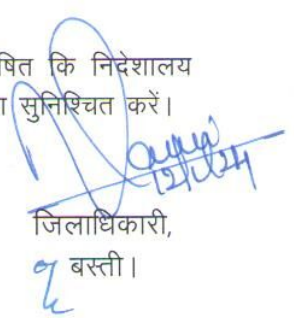 षित कि निदेशालय
ा सुनिश्चित करें।
जिलाधिकारी,
बस्ती।